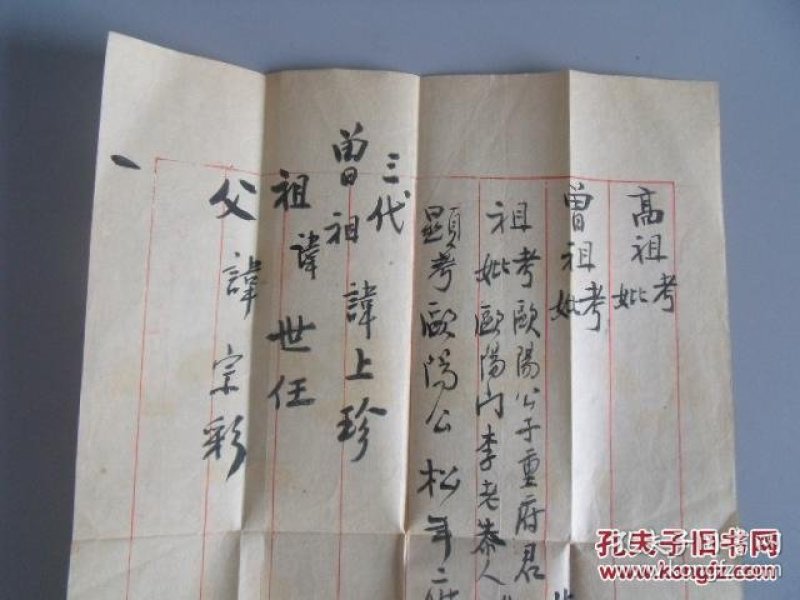 高祖考妣
曾祖考妣
祖考歐陽公子重府君
祖妣歐陽門李老泰人
顯考歐陽公松年二
三代
曾祖諱上珍
祖諱世任
父諱宗彩
孔夫子旧书网
www.kongfz.com